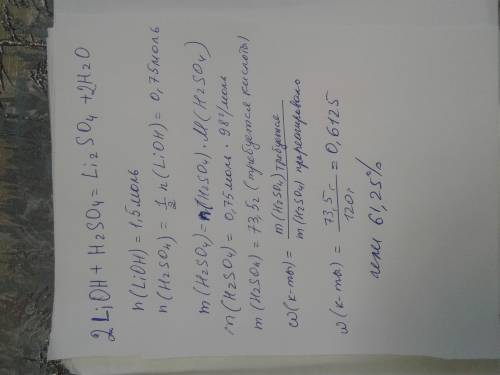 2LiOH + H2SO4 = Li2SO4 + 2H2O
n(LiOH) = 1,5 моль
n(H2SO4) = 1/2 n(LiOH) = 0,75 моль
m(H2SO4) = n(H2SO4) · M(H2SO4)
m(H2SO4) = 0,75 моль · 98 г/моль
m(H2SO4) = 73,5 г (требуется кислоты)
ω(к-ты) = m(H2SO4) требуется / m(H2SO4) прореагировало
ω(к-ты) = 73,5 г / 120 г = 0,6125
или 61,25%